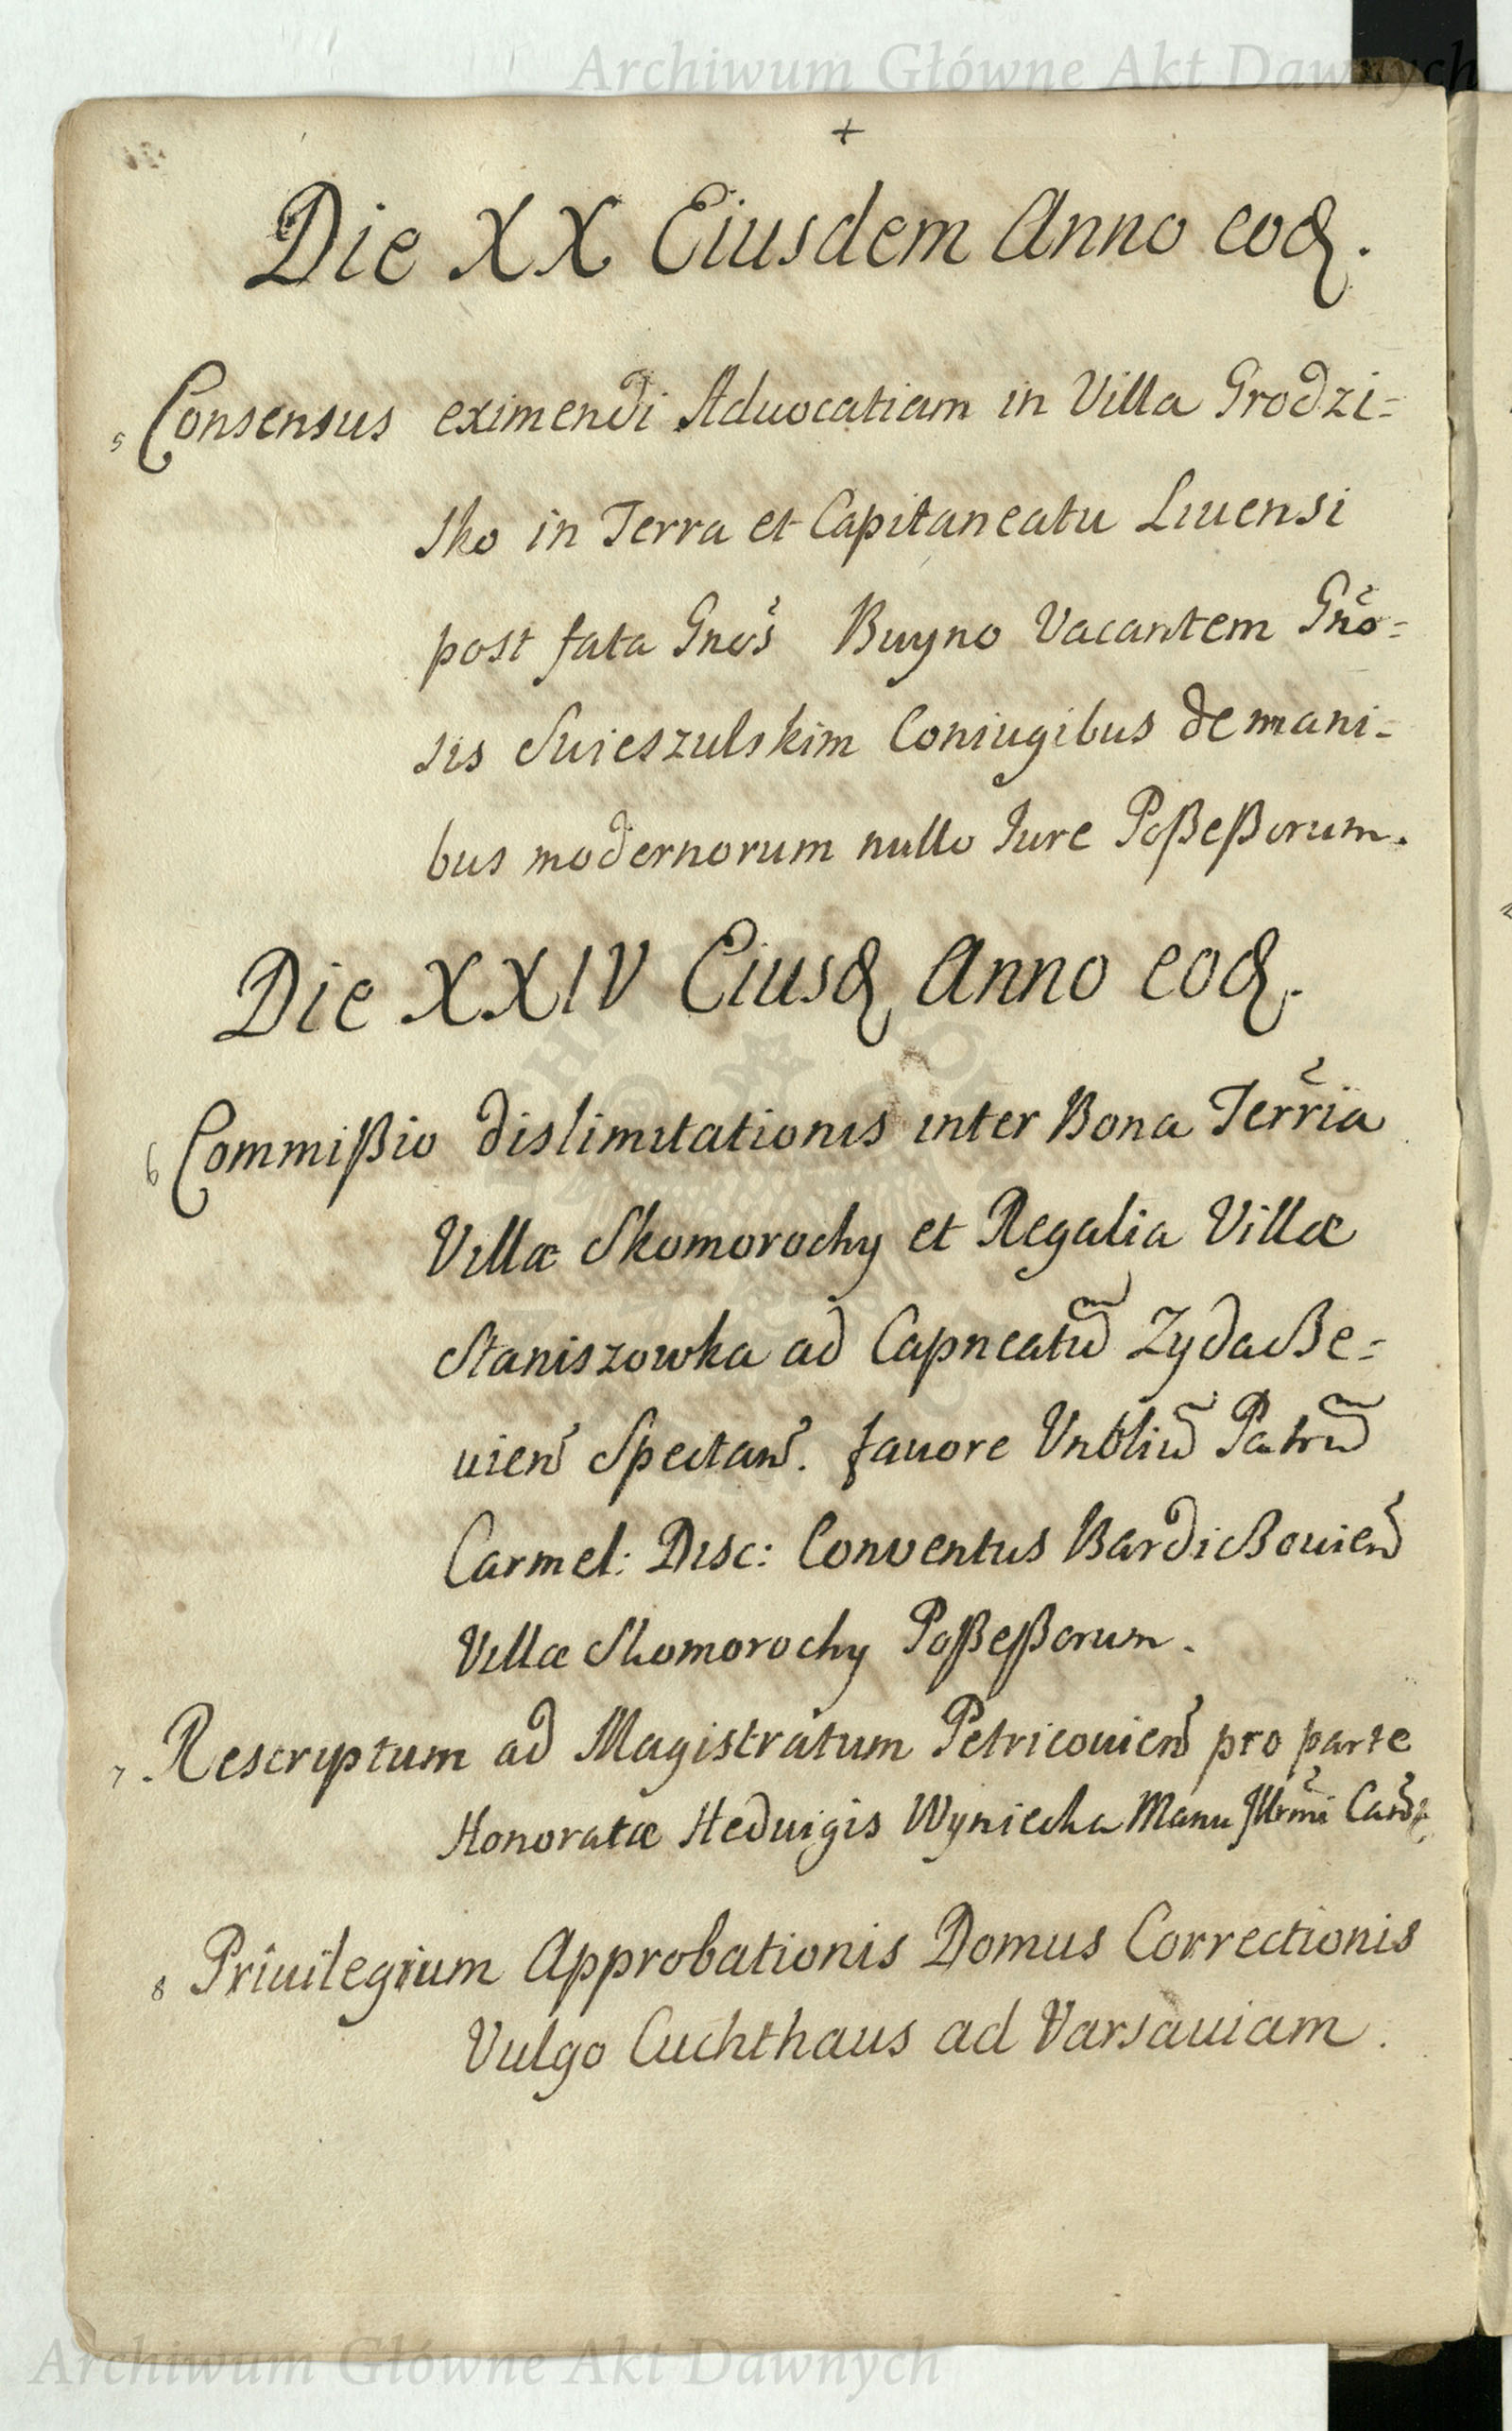 Archiwum Główne Akt Dawnych
+
Die XX Eiusdem Anno eod.
5 Consensus eximendi Aduocatiam in Villa Grodzi=
sko in Terra et Capitaneatu Liuensi
post fata Gnõs Buyno Vacantem Gnõ=
sis Swieszulskim Coniugibus de mani=
bus modernorum nullo Jure Poßeßorum.
Die XXIV Eiusd Anno eod.
6 Commißio dislimitationis inter Bona Terr̃ia
Villæ Skomorochy et Regalia Villæ
Staniszowka ad Capneatũ Zydacze=
uien̄ Spectan̄. fauore Vnbliũ Patrũ
Carmel: Disc: Conventus Bardiczouien̄
Villæ Skomorochy Poßeßorum.
7 Rescryptum ad Magistratum Petricouien̄ pro parte
Honoratæ Heduigis Wyniecka Manu Illrm̃i
8 Priuilegium Approbationis Domus Correctionis
Vulgo Cuchthaus ad Varsauiam.
Archiwum Główne Akt Dawnych